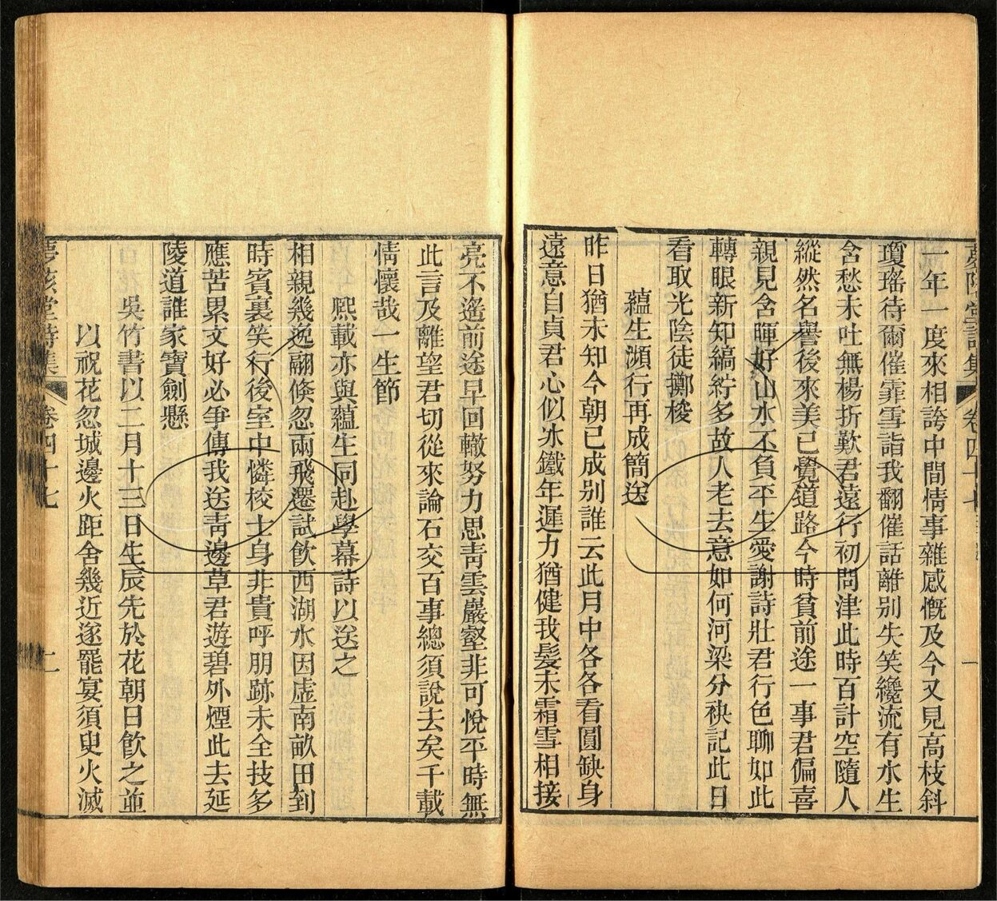 一年一度來相誇中間情事雜感慨及今又見高枝斜
瓊瑤待爾催霏雪詣我翻催話離別失笑纔流有水生
含愁未吐無楊折歎君遠行初問津此時百計空隨人
縱然名譽後來美已覺道路今時貧前途一事君偏喜
親見含暉好山水不負平生愛謝詩壯君行色聊如此
轉眼新知縞紵多故人老去意如何河梁分袂記此日
看取光陰徒擲梭
蘊生瀕行再成簡送
昨日猶未知今朝已成别誰云此月中各各看圓缺身
遠意自貞君心似冰鐵年遲力猶健我髮未霜雪相接
亮不遙前途早回轍努力思靑雲巖壑非可悅平時無
此言及離望君切從來論石交百事總須說去矣千載
情懷哉一生節
熙載亦與蘊生同赴學幕詩以送之
相親幾逸翮倏忽兩飛遷試飲西湖水因虛南畝田到
時賓裏笑行後室中憐校士身非貴呼朋跡未全技多
應苦累文好必爭傳我送靑邊草君遊碧外煙此去延
陵道誰家寶劍懸
吳竹書以二月十三日生辰先於花朝日飲之並
以祝花忽城邊火距舍幾近遂罷宴須臾火滅
卷四十七
二